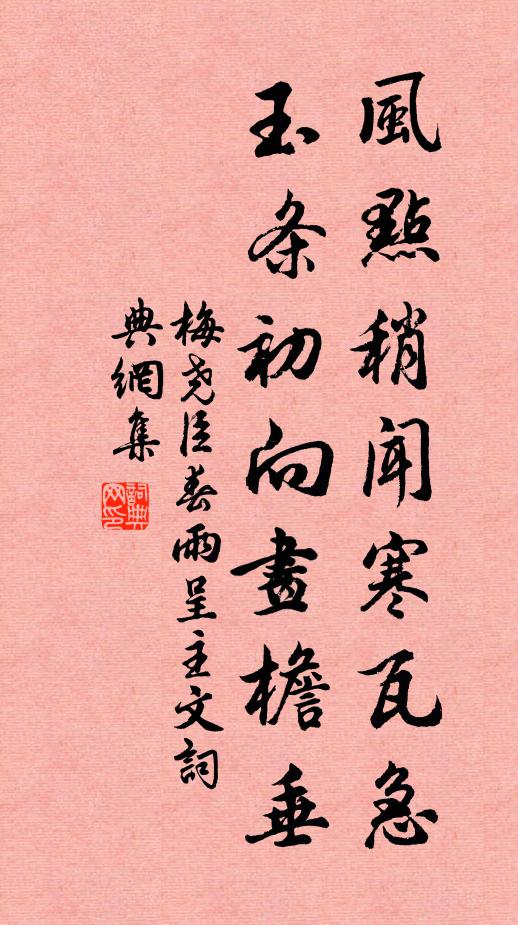 風點稍聞寒瓦急
玉条初向畫檐垂
梅尧臣春雨呈主文詞
典網集
詞典网印